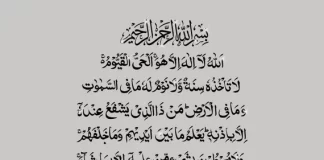 بِسْمِ اللهِ الرَّحْمٰنِ الرَّحِيْمِ
اَللهُ لَآ اِلٰهَ اِلَّا هُوَ اَلْحَيُّ الْقَيُّوْمُ
لَا تَاْخُذُهٗ سِنَةٌ وَّلَا نَوْمٌ لَهٗ مَا فِي السَّمٰوٰتِ
وَمَا فِي الْاَرْضِ مَنْ ذَا الَّذِيْ يَشْفَعُ عِنْدَهٗٓ
اِلَّا بِاِذْنِهٖ يَعْلَمُ مَا بَيْنَ اَيْدِيْهِمْ وَمَا خَلْفَهُمْ